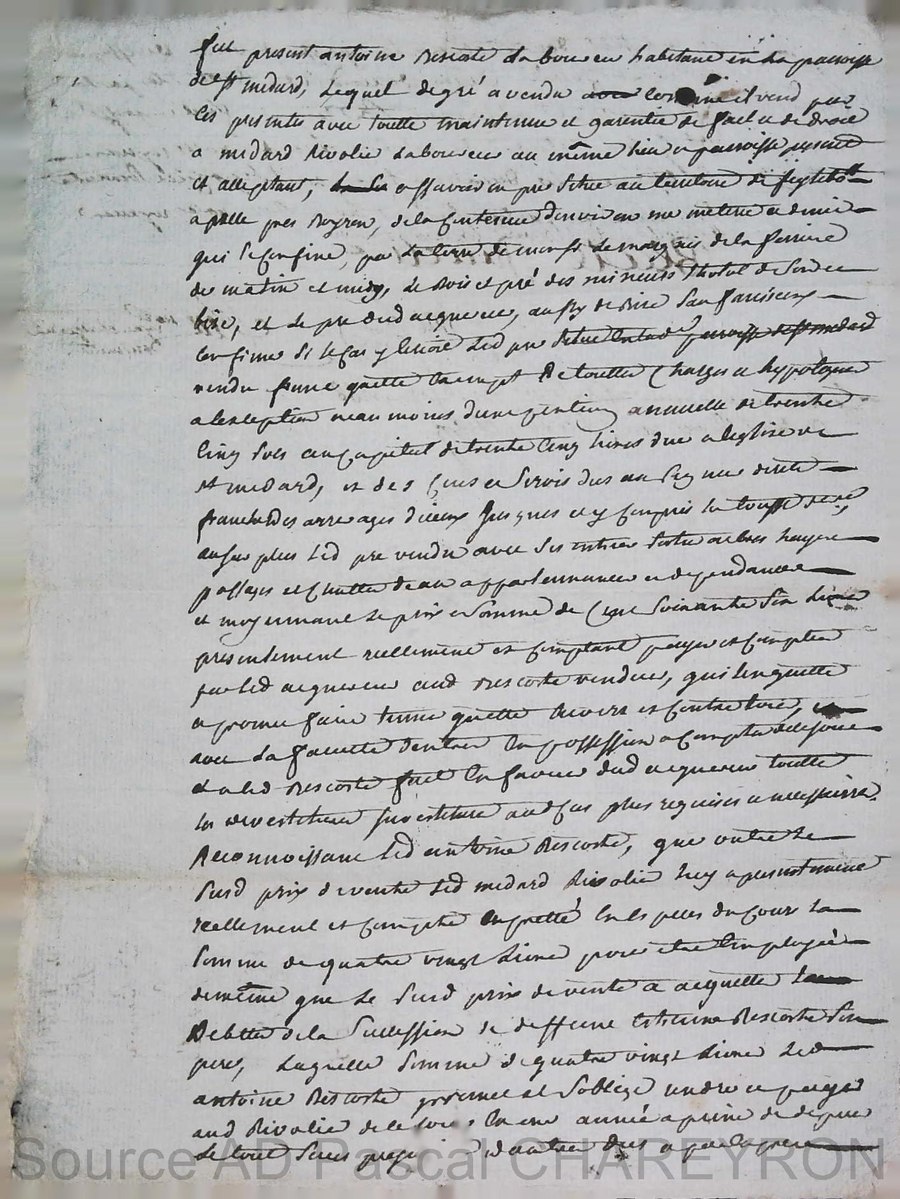 fut present antoine Rescoste Laboureur habitant en La paroisse
de st medard, Lequel de gré a vendu comme il vend par
Ces presentes avec toutte maintenue et garentie de fait et de droit
a medard Rivolie Laboureur au même lieu et paroisse present
et acceptant, assavoir un pré Situé au territoire de
apellé pres de la Contenue denviron une metteree et demie
qui Se Confine, par La terre de monsr Le marquis de la
de matin et midy, Le Bois et pré des mineurs thotol de Soir
bise, et Le pre dud acquereur, aussy de Bise Sauf
Confins Si le Cas y Led pre Situé paroisse de st medard
vendu franc quitte Exempt De touttes Charges et hypoteques
a lexception neanmoins dune pention annuelle de trente
Cinq Sols au Capital de trente Cinq livres due a leglise de
st medard, et des Cens et Servis dus au Seigneur direct
franc des arrerages diceux Jusques et y Compris
au Surplus Led pre vendu avec Ses entrées Sorties arbres hayes
passages et Chutte deau appartenances et dependances
et moyennant Le prix et Somme de Cent Soixante Six Livres
presentement reellement et Comptant payée et Comptée
par Led acquereur aud Rescoste vendeur, qui len quitte
a promis faire tenir quitte Envers et Contre tous,
avec La faculté dentrer En possession a Compter de ce jour
et a led Rescoste fait En faveur dud acquereur toutte
Les devestiture Investiture aud Cas plus requises et necessaires.
Reconnoissant Led antoine Rescoste, que outre Le
Susd prix de vente Led medard Rivolie Luy a presentement
reellement et Compté En Especes du Cours La
Somme de quatre vingt Livres pour etre Employée
de même que Le Susd prix de vente a acquitter
Debttes de la Succession de deffunt Etienne Rescoste Son
pere, Laquelle Somme de quatre vingt Livres Led
antoine Rescoste promet et Soblige rendre et payer
aud Rivolie de ce jour En une année a peine de depens
Le tout Sans autre Dus
Source AD Pascal CHAREYRON